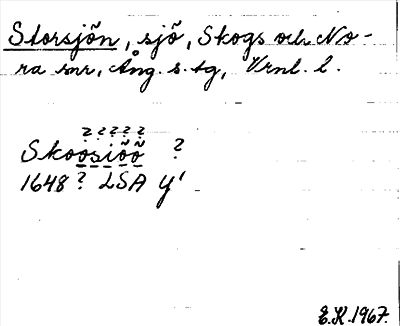 Storsjön, sjö, Skogs och No-
ra snr, Ång. s. tg, Vrnl. l.
? ? ? ? ?
Skoosiöö ?
1648 ? LSA Y¹
E.K. 1967.